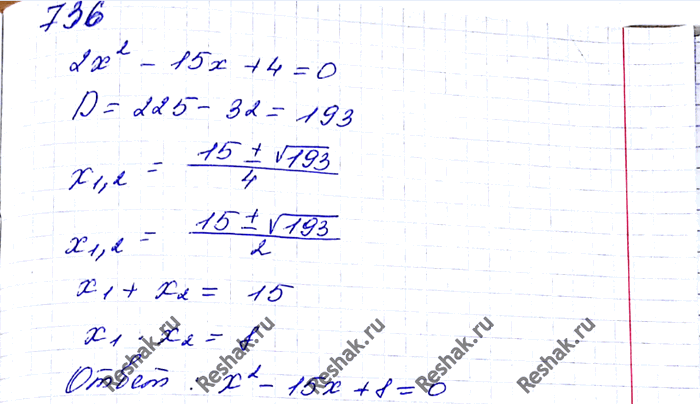 736
2x² - 15x + 4 = 0
D = 225 - 32 = 193
x₁,₂ = (15 ± √193)/4
x₁,₂ = (15 ± √193)/2
x₁ + x₂ = 15
x₁ · x₂ = 8
Ответ: x² - 15x + 8 = 0
Reshak.ru Reshak.ru Reshak.ru Reshak.ru